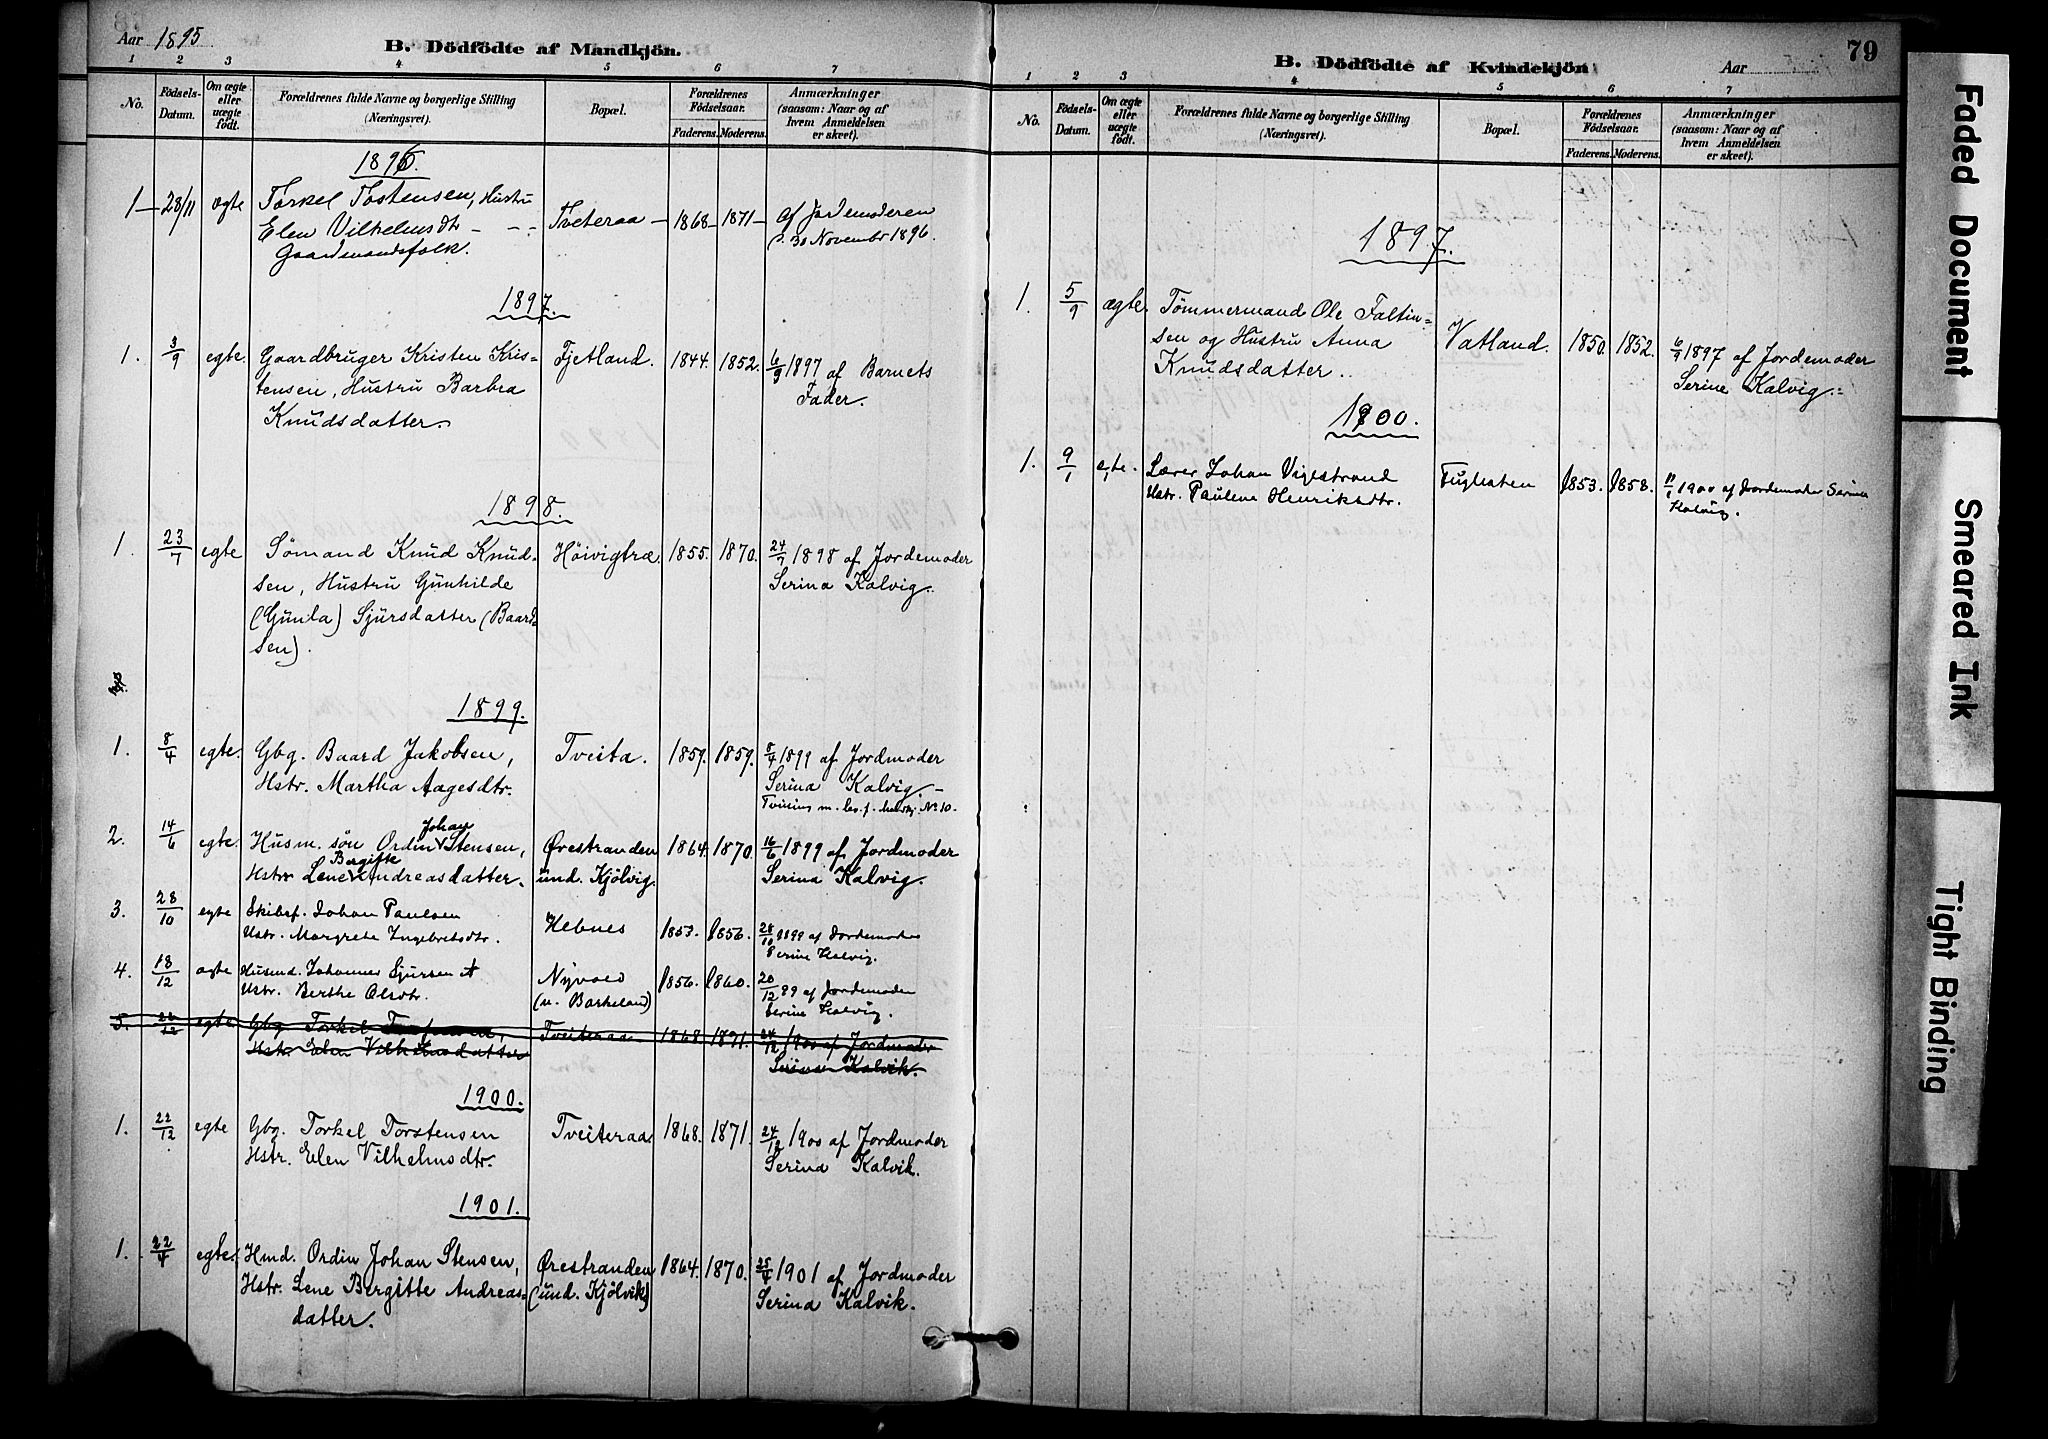 Aar 1895
B. Dödfödte af Mandkjön.
1 2 3 4 5 6 7
No.
Födsels-
Datum.
Om ægte
eller
uægte
födt.
Forældrenes fulde Navne og borgerlige Stilling
(Næringsvei).
Bopæl.
Forældrenes
Födselsaar.
Faderens. Moderens.
Anmærkninger
(saasom: Naar og af
hvem Anmeldelsen
er skeet).
1896.
1 — 28/11 ægte Torkel Tostensen, Hustru Tveteraa — 1868 — 1871 — af Jordemoderen
Elen Vilhelmsdtr
d. 30 Novembr 1896.
Gaardmandsfolk.
1897.
1. 3/9 egte. Gaardbruger Kristen Kris- Fjetland. 1844. 1852. 6/9 1897 af Barnets
tensen, Hustru Barbra Fader.
Knudsdatter.
1898.
1. 23/7 egte Sömand Knud Knud- Höivigtræ 1855. 1870. 24/7 1898 af Jordemoder
sen, Hustru Gunhilde Serina Kalvig.
(Gunla) Sjursdatter (Baard-
sen).
1899.
1. 8/4 egte. Gbg. Baard Jakobsen, Tveita. 1859. 1859. 8/4 1899 af Jordmoder
Hstr. Martha Aagesdtr. Serina Kalvig. —
No 10.
2. 14/6 egte. Husm. sön Ordin Johan Stensen, Ørestranden 1864. 1870. 16/6 1899 af Jordmoder
Hstr. Lene Bergitte Andreasdatter. und. Kjölvig. Serina Kalvig.
3. 28/10 egte Skibsf. Johan Paulsen Hebnes 1853. 1856. 28/10 1899 af Jordemoder
Ustr. Margrete Ingebretsdtr. Serine Kalvig.
4. 18/12 ægte Husmd. Johannes Sjursen Nyvold 1856. 1860. 20/12 99 af Jordemoder
Ustr. Berthe Olsdtr. (u. Barkeland) Serine Kalvig.
5. 22/12 egte. Gbg Torkel Torstensen, Tveiteraa 1868. 1871. 24/12 1900 af Jordmoder
Hstr. Elen Vilhelmsdatter Serina Kalvik.
1900.
1. 22/12 egte Gbg. Torkel Torstensen Tveiteraa 1868. 1871. 24/12 1900 af Jordmoder
Hstr. Elen Vilhelmsdtr. Serina Kalvik.
1901.
1. 22/4 egte. Hmd. Ordin Johan Stensen, Ørestranden 1864. 1870. 25/4 1901 af Jordmoder
Hstr. Lene Bergitte Andreas- (und. Kjölvik) Serina Kalvik.
datter.
79
B. Dödfödte af Kvindekjön
Aar
1 2 3 4 5 6 7
No.
Födsels-
Datum.
Om ægte
eller
uægte
födt.
Forældrenes fulde Navne og borgerlige Stilling
(Næringsvei).
Bopæl.
Forældrenes
Födselsaar.
Faderens. Moderens.
Anmærkninger
(saasom: Naar og af
hvem Anmeldelsen
er skeet).
1897.
1. 5/9 ægte. Tömmermand Ole Faltin-
sen og Hustru Anna Vatland. 1850. 1852. 6/9 1897 af Jordemoder
Knudsdatter. Serine Kalvig.
1900.
1. 9/1 egte. Lærer Johan Vigestrand Fuglesten 1853. 1858. 11/1 1900 af Jordemoder Serine
Ustr. Paulene Henriksdtr. Kalvig.
Faded Document
Smeared Ink
Tight Binding